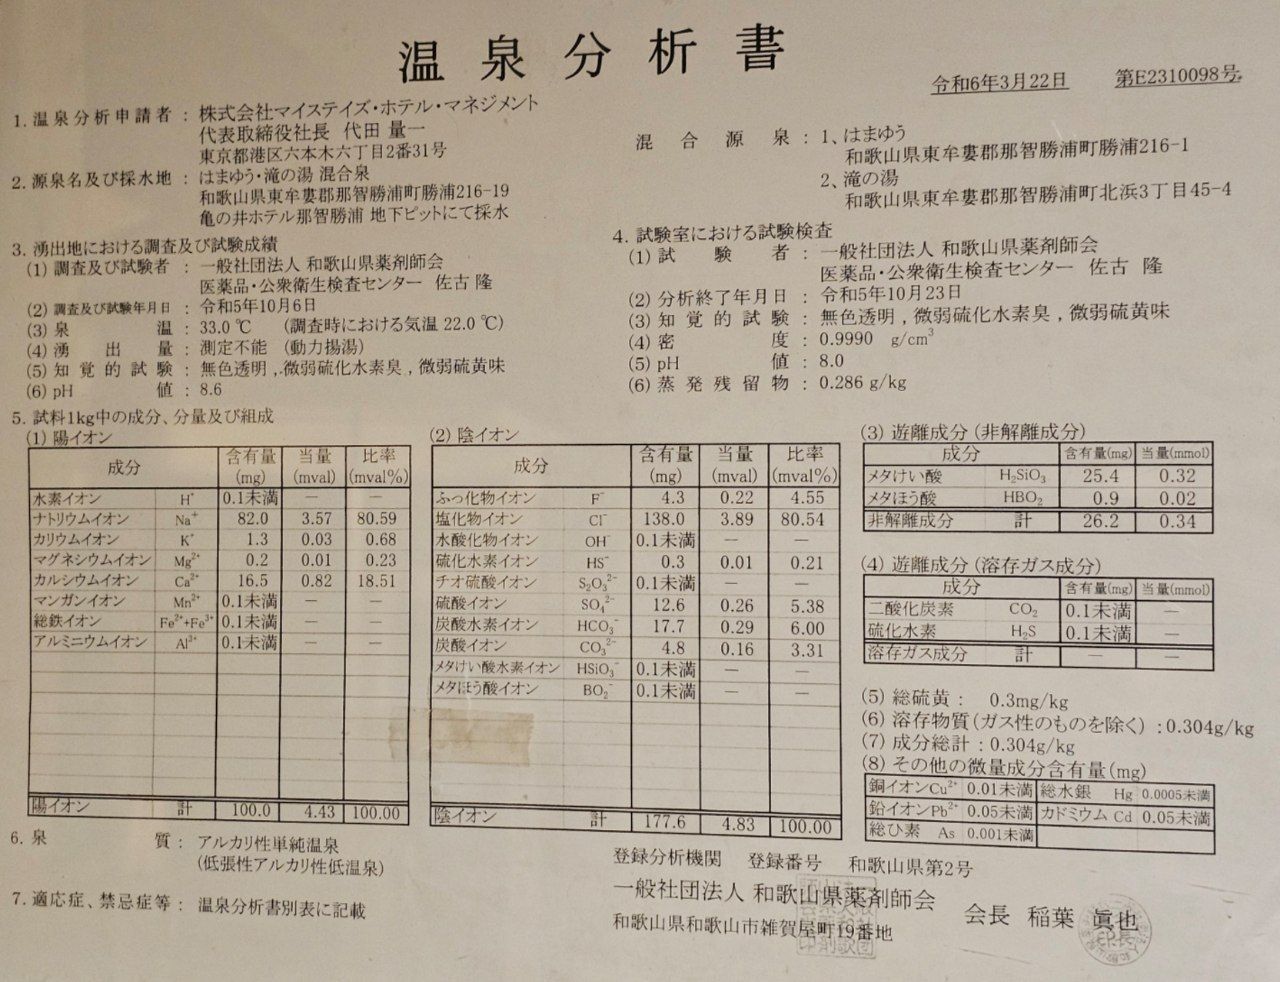 温泉分析書
令和6年3月22日 第E2310098号
1. 温泉分析申請者 : 株式会社マイステイズ・ホテル・マネジメント
代表取締役社長 代田 量一
東京都港区六本木六丁目2番31号
2. 源泉名及び採水地 : はまゆう・滝の湯 混合泉
和歌山県東牟婁郡那智勝浦町勝浦216-19
亀の井ホテル那智勝浦 地下ピットにて採水
混合源泉 : 1、はまゆう
和歌山県東牟婁郡那智勝浦町勝浦216-1
2、滝の湯
和歌山県東牟婁郡那智勝浦町北浜3丁目45-4
3. 湧出地における調査及び試験成績
(1) 調査及び試験者 : 一般社団法人 和歌山県薬剤師会
医薬品・公衆衛生検査センター 佐古 隆
(2) 調査及び試験年月日 : 令和5年10月6日
(3) 泉温 : 33.0 ℃ (調査時における気温 22.0 ℃)
(4) 湧出量 : 測定不能 (動力揚湯)
(5) 知覚的試験 : 無色透明 , 微弱硫化水素臭 , 微弱硫黄味
(6) pH値 : 8.6
4. 試験室における試験検査
(1) 試験者 : 一般社団法人 和歌山県薬剤師会
医薬品・公衆衛生検査センター 佐古 隆
(2) 分析終了年月日 : 令和5年10月23日
(3) 知覚的試験 : 無色透明 , 微弱硫化水素臭 , 微弱硫黄味
(4) 密度 : 0.9990 g/cm³
(5) pH値 : 8.0
(6) 蒸発残留物 : 0.286 g/kg
5. 試料1kg中の成分、分量及び組成
(1) 陽イオン
成分 含有量(mg) 当量(mval) 比率(mval%)
水素イオン H⁺ 0.1未満 — —
ナトリウムイオン Na⁺ 82.0 3.57 80.59
カリウムイオン K⁺ 1.3 0.03 0.68
マグネシウムイオン Mg²⁺ 0.2 0.01 0.23
カルシウムイオン Ca²⁺ 16.5 0.82 18.51
マンガンイオン Mn²⁺ 0.1未満 — —
総鉄イオン Fe²⁺+Fe³⁺ 0.1未満 — —
アルミニウムイオン Al³⁺ 0.1未満 — —
陽イオン 計 100.0 4.43 100.00
(2) 陰イオン
成分 含有量(mg) 当量(mval) 比率(mval%)
ふっ化物イオン F⁻ 4.3 0.22 4.55
塩化物イオン Cl⁻ 138.0 3.89 80.54
水酸化物イオン OH⁻ 0.1未満 — —
硫化水素イオン HS⁻ 0.3 0.01 0.21
チオ硫酸イオン S₂O₃²⁻ 0.1未満 — —
硫酸イオン SO₄²⁻ 12.6 0.26 5.38
炭酸水素イオン HCO₃⁻ 17.7 0.29 6.00
炭酸イオン CO₃²⁻ 4.8 0.16 3.31
メタけい酸水素イオン HSiO₃⁻ 0.1未満 — —
メタほう酸イオン BO₂⁻ 0.1未満 — —
陰イオン 計 177.6 4.83 100.00
(3) 遊離成分 (非解離成分)
成分 含有量(mg) 当量(mmol)
メタけい酸 H₂SiO₃ 25.4 0.32
メタほう酸 HBO₂ 0.9 0.02
非解離成分 計 26.2 0.34
(4) 遊離成分 (溶存ガス成分)
成分 含有量(mg) 当量(mmol)
二酸化炭素 CO₂ 0.1未満 —
硫化水素 H₂S 0.1未満 —
溶存ガス成分 計 — —
(5) 総硫黄 : 0.3mg/kg
(6) 溶存物質 (ガス性のものを除く) : 0.304g/kg
(7) 成分総計 : 0.304g/kg
(8) その他の微量成分含有量(mg)
銅イオンCu²⁺ 0.01未満 総水銀 Hg 0.0005未満
鉛イオンPb²⁺ 0.05未満 カドミウム Cd 0.05未満
総ひ素 As 0.001未満
6. 泉質 : アルカリ性単純温泉
(低張性アルカリ性低温泉)
7. 適応症、禁忌症等 : 温泉分析書別表に記載
登録分析機関 登録番号 和歌山県第2号
一般社団法人 和歌山県薬剤師会 会長 稲葉 眞也
和歌山県和歌山市雑賀屋町19番地